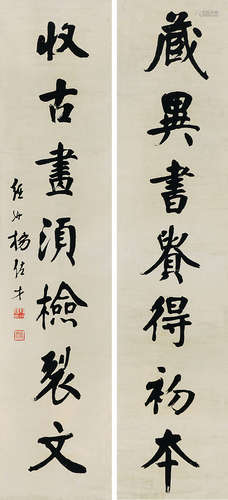 藏異書貴得初本
收古畫須檢裂文
楊佐才